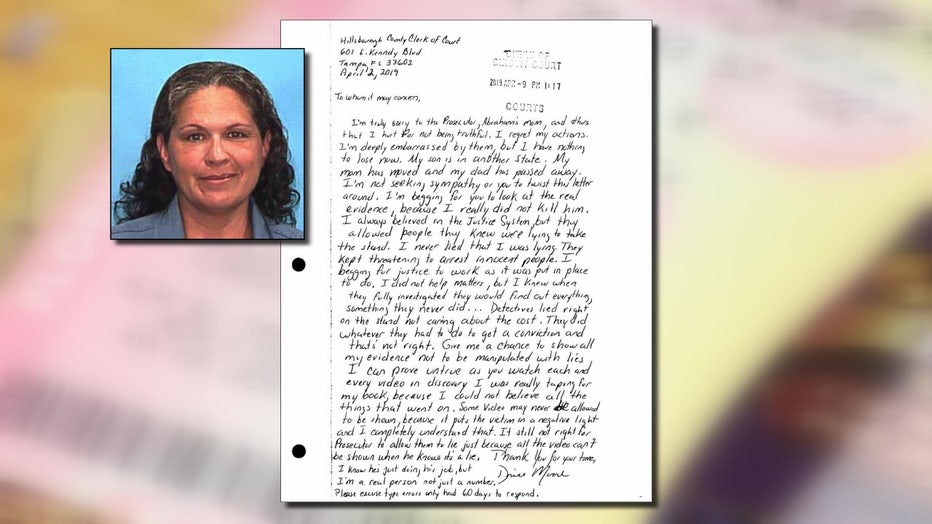 Hillsborough County Clerk of Court
601 E. Kennedy Blvd
Tampa, FL 33602
April 2, 2019
CIRCUIT COURT
2019 APR -9 PM 1:17
COURTS
To whom it may concern,
I'm truly sorry to the Prosecutor, Abraham's mom, and others
that I hurt for not being truthful. I regret my actions.
I'm deeply embarrassed by them, but I have nothing
to lose now. My son is in another state. My
mom has moved and my dad has passed away.
I'm not seeking sympathy or you to twist this letter
around. I'm begging for you to look at the real
evidence, because I really did not kill him.
I always believed in the Justice System, but they
allowed people they knew were lying to take
the stand. I never lied that I was lying. They
kept threatening to arrest innocent people. I
begging for justice to work as it was put in place
to do. I did not help matters, but I knew when
they fully investigated they would find out everything,
something they never did... Detectives lied right
on the stand not caring about the cost. They did
whatever they had to do to get a conviction and
that's not right. Give me a chance to show all
my evidence not to be manipulated with lies
I can prove untrue as you watch each and
every video in discovery I was really taping for
my book, because I could not believe all the
things that went on. Some video may never be allowed
to be shown, because it puts the victim in a negative light
and I completely understand that. It still not right for
Prosecutor to allow them to lie just because all the video can't
be shown when he knows its a lie. Thank you for your time,
I know he's just doing his job, but
I'm a real person not just a number. Driee Moore
Please excuse type errors only had 60 days to respond.